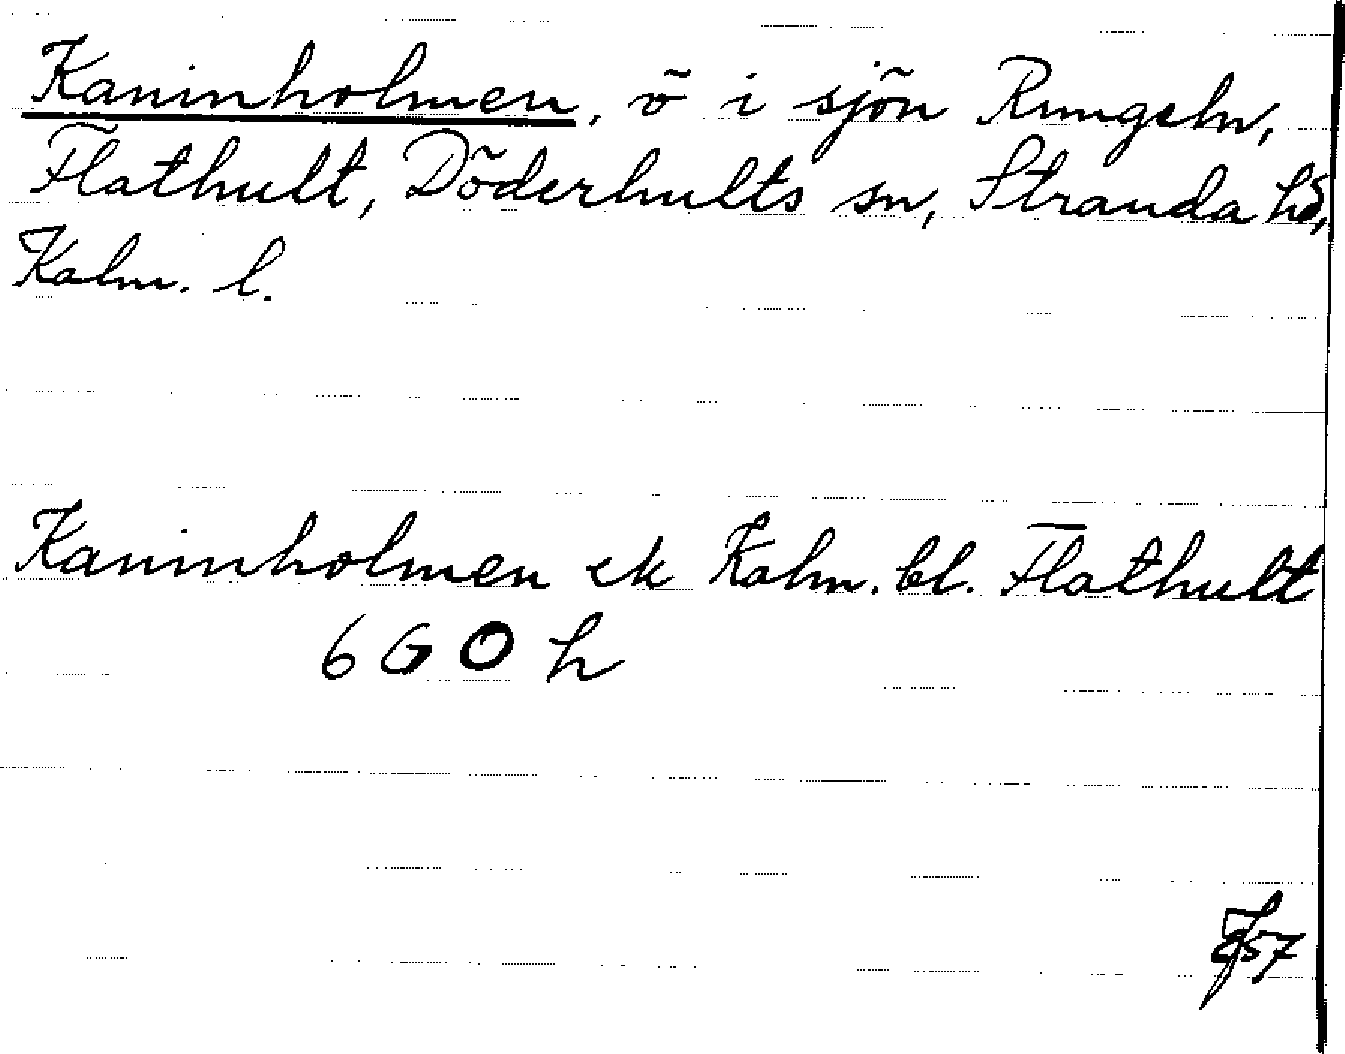 Kaninholmen, ö i sjön Rungeln,
Flathult, Döderhults sn, Stranda hd,
Kalm. l.
Kaninholmen ek Kalm. bl. Flathult
6 G O h
57